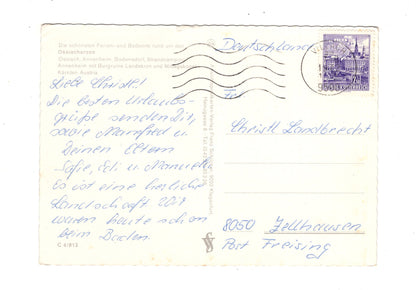 Die schönsten Ferien- und Badeorte rund um den
Ossiachersee
Ossiach, Annenheim, Bodensdorf,
Annenheim mit Burgruine Landskron und
Kärnten, Austria
Liebe Christl!
Die besten Urlaubs-
grüße senden Dir,
sowie Manfred u.
Deinen Eltern
Sofie, Edi u. Manuela
Es ist eine herrliche
Landschaft
waren heute schon
beim Baden
C 41/812
Deutschland
Christl Landbrecht
8050 Zellhausen
Post Freising